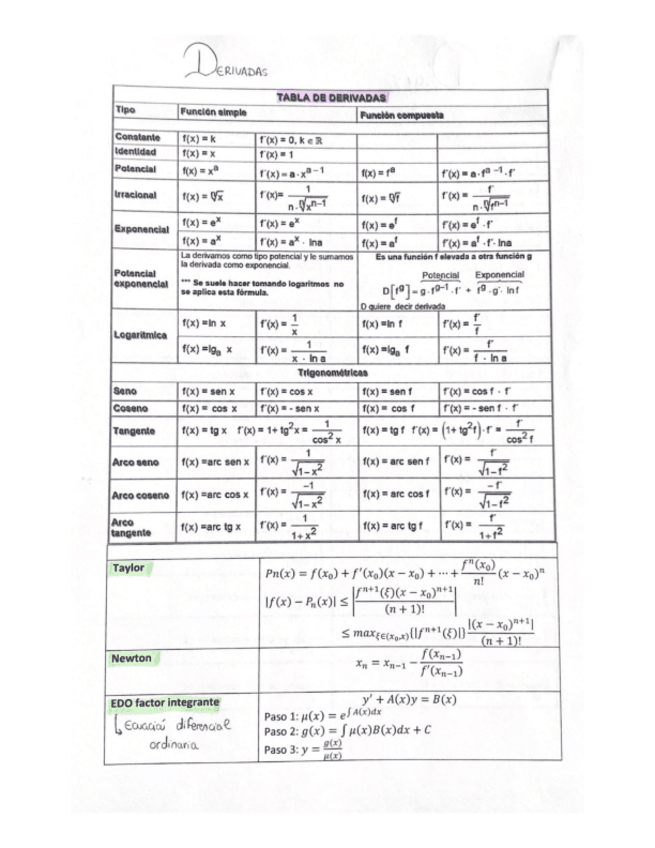 DERIVADAS
TABLA DE DERIVADAS
Tipo Función simple Función compuesta
Constante f(x) = k f'(x) = 0, k ∈ ℝ
Identidad f(x) = x f'(x) = 1
Potencial f(x) = x^a f'(x) = a · x^(a−1) f(x) = f^a f'(x) = a · f^(a−1) · f'
Irracional f(x) = ⁿ√x f'(x) = 1 / (n · ⁿ√(x^(n−1))) f(x) = ⁿ√f f'(x) = f' / (n · ⁿ√(f^(n−1)))
Exponencial f(x) = e^x f'(x) = e^x f(x) = e^f f'(x) = e^f · f'
f(x) = a^x f'(x) = a^x · lna f(x) = a^f f'(x) = a^f · f' · lna
Potencial exponencial La derivamos como tipo potencial y le sumamos
la derivada como exponencial.
*** Se suele hacer tomando logaritmos no
se aplica esta fórmula.
Es una función f elevada a otra función g
Potencial Exponencial
D[f^g] = g · f^(g−1) · f' + f^g · g' · lnf
D quiere decir derivada
Logarítmica f(x) =ln x f'(x) = 1/x f(x) =ln f f'(x) = f'/f
f(x) =lg_a x f'(x) = 1 / (x · ln a) f(x) =lg_a f f'(x) = f' / (f · ln a)
Trigonométricas
Seno f(x) = sen x f'(x) = cos x f(x) = sen f f'(x) = cos f · f'
Coseno f(x) = cos x f'(x) = - sen x f(x) = cos f f'(x) = - sen f · f'
Tangente f(x) = tg x f'(x) = 1+ tg²x = 1 / cos² x f(x) = tg f f'(x) = (1+ tg²f) · f' = f' / cos² f
Arco seno f(x) =arc sen x f'(x) = 1 / √(1−x²) f(x) = arc sen f f'(x) = f' / √(1−f²)
Arco coseno f(x) =arc cos x f'(x) = −1 / √(1−x²) f(x) = arc cos f f'(x) = −f' / √(1−f²)
Arco tangente f(x) =arc tg x f'(x) = 1 / (1+x²) f(x) = arc tg f f'(x) = f' / (1+f²)
Taylor Pn(x) = f(x₀) + f'(x₀)(x − x₀) + ⋯ + fⁿ(x₀)/n! (x − x₀)ⁿ
|f(x) − Pₙ(x)| ≤ |f^(n+1)(ξ)(x − x₀)^(n+1) / (n + 1)!|
≤ max_(ξ∈(x₀,x)){|f^(n+1)(ξ)|} |(x − x₀)^(n+1)| / (n + 1)!
Newton xₙ = xₙ₋₁ − f(xₙ₋₁) / f'(xₙ₋₁)
EDO factor integrante y' + A(x)y = B(x)
Paso 1: μ(x) = e^(∫A(x)dx)
Paso 2: g(x) = ∫ μ(x)B(x)dx + C
Paso 3: y = g(x)/μ(x)
↳ Ecuación diferencial
ordinaria